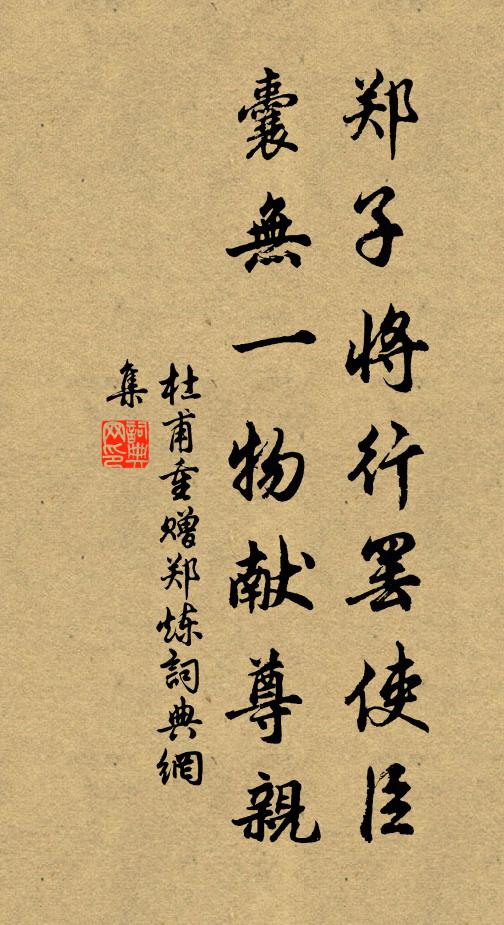 郑子将行罢使臣
囊無一物献尊親
杜甫重赠郑炼詞典網
集
詞典网印